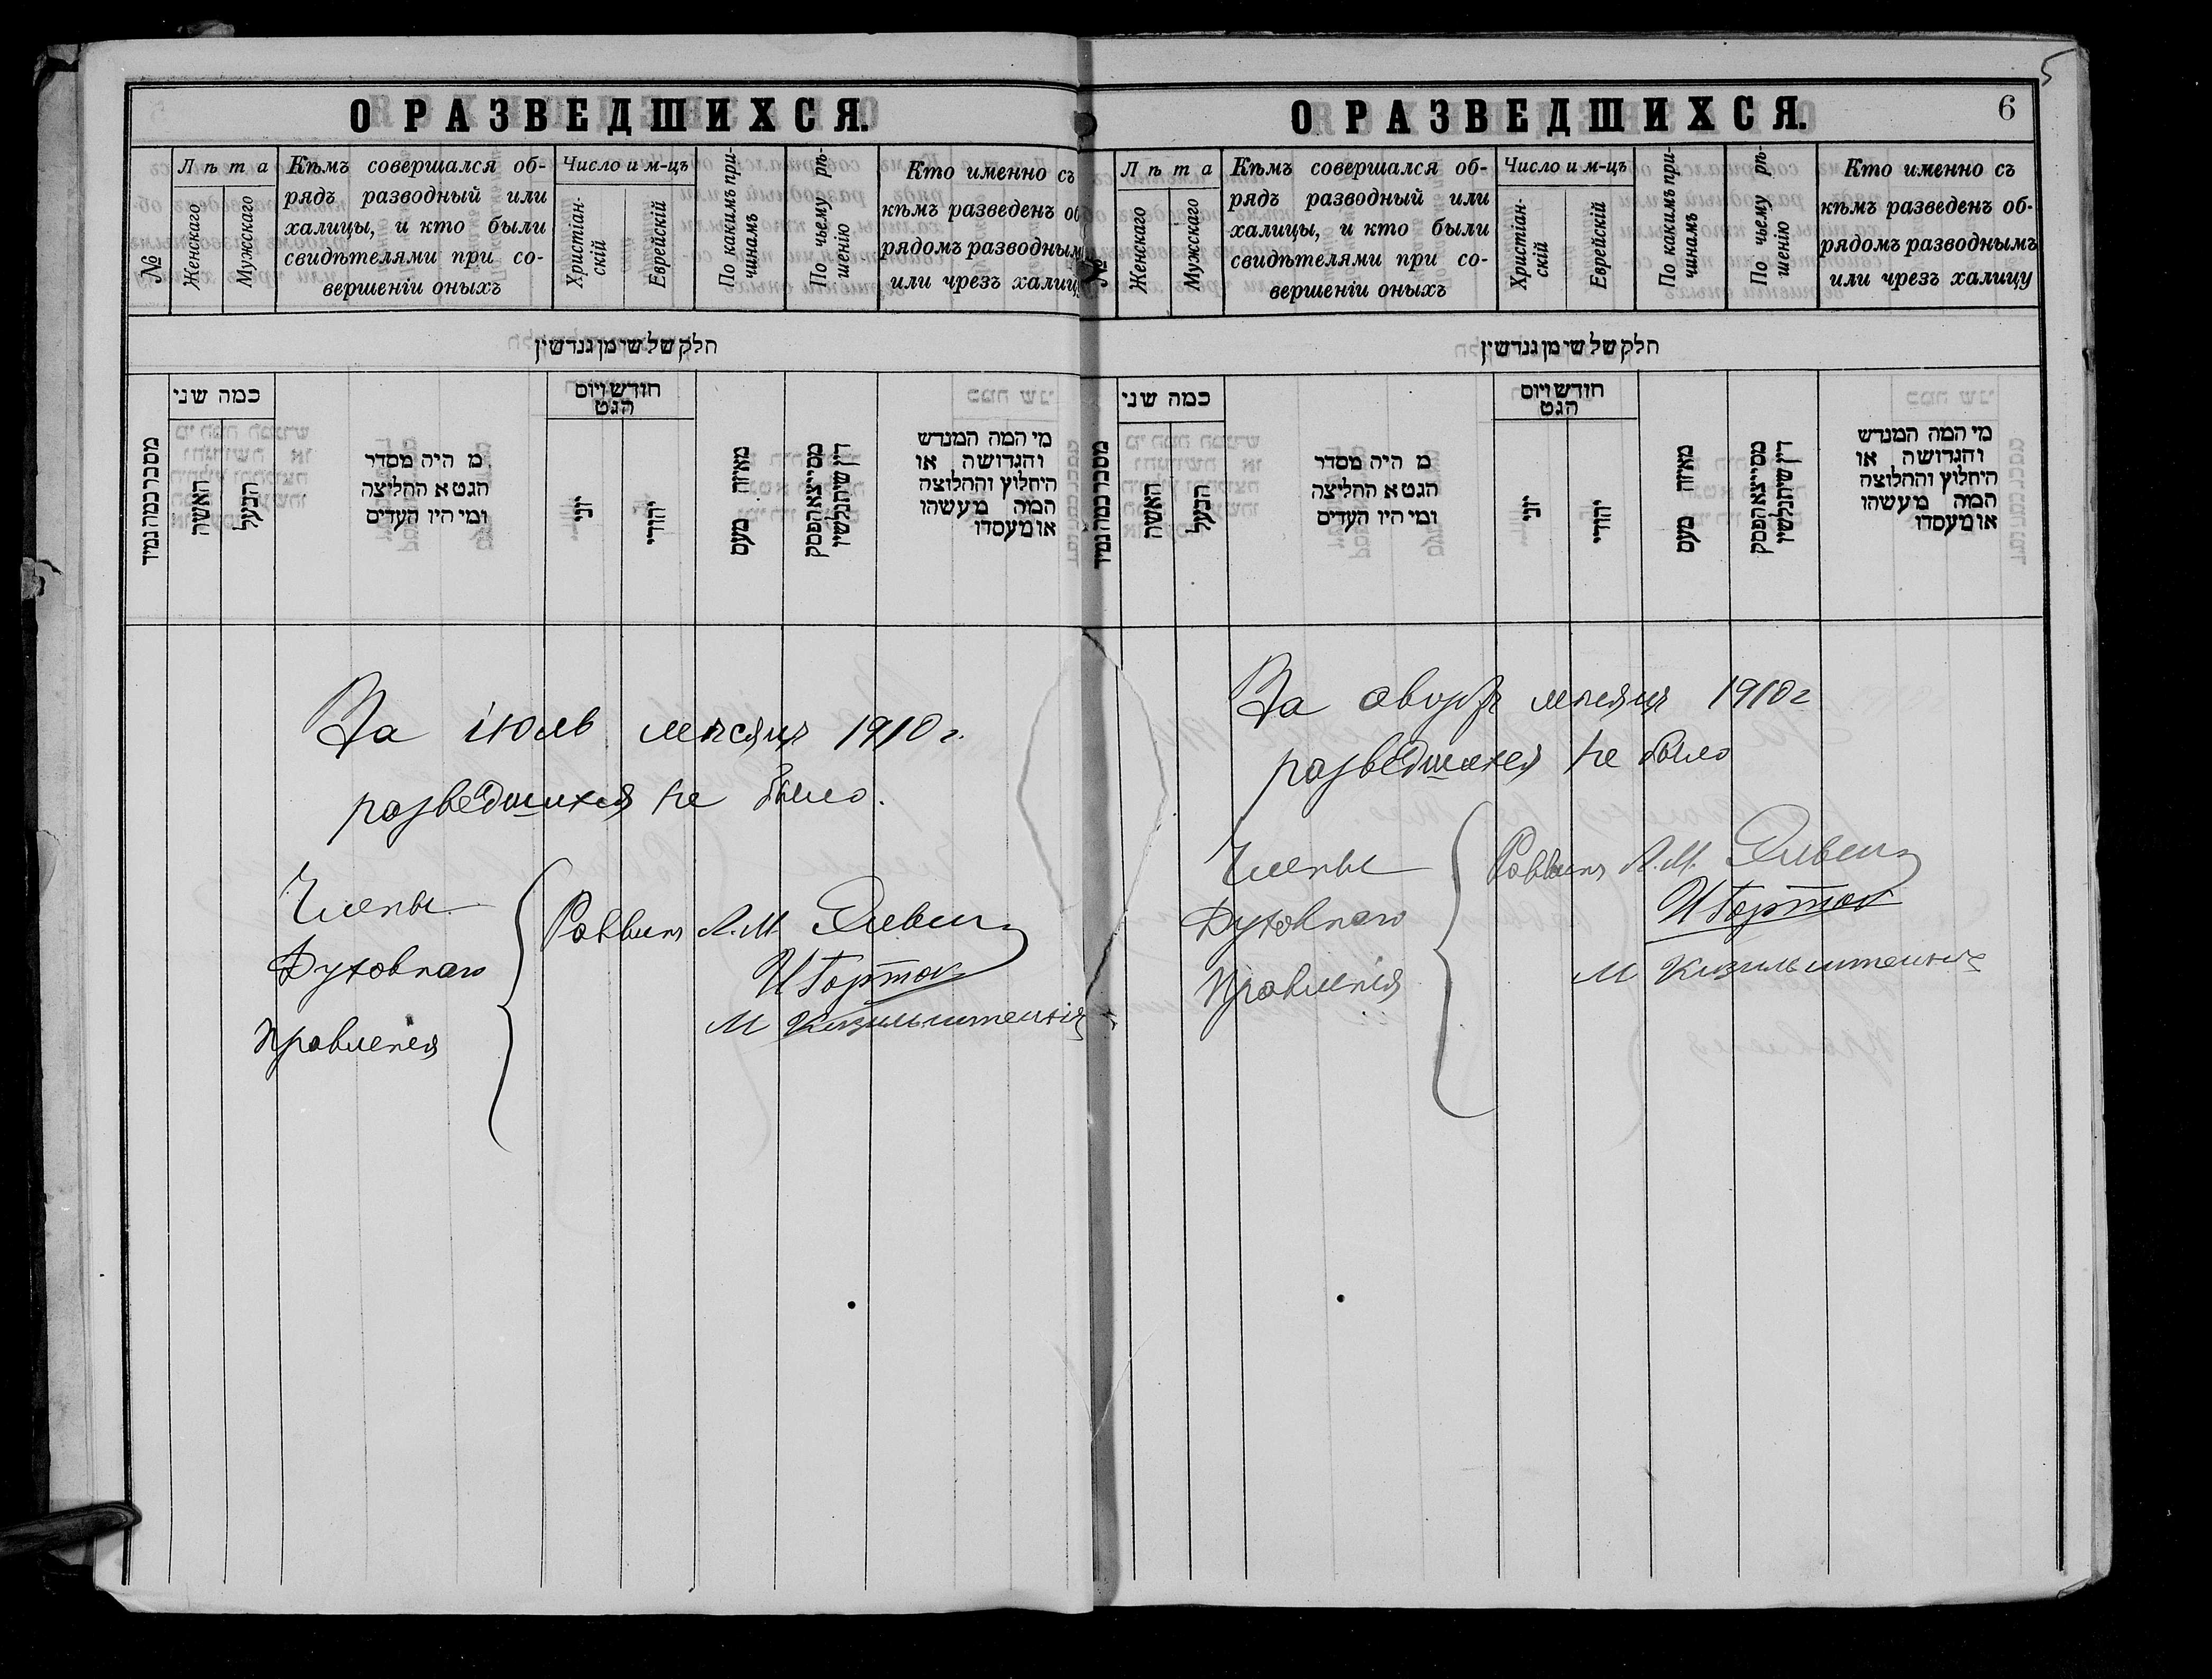 О РАЗВЕДШИХСЯ.
№
Лѣта
Женскаго
Мужскаго
Кѣмъ совершался об-
рядъ разводный или
халицы, и кто были
свидѣтелями при со-
вершеніи оныхъ
Число и м-цъ
Христіан-
скій
Еврейскій
По какимъ при-
чинамъ
По чьему рѣ-
шенію
Кто именно съ
кѣмъ разведенъ об
рядомъ разводным
или чрезъ халиц
חלק של שי מן גנדשין
כמה שני
האשה
הבעל
מ היה מסדר
הגט א החליצה
ומי היו העדים
חודש ויום
הגט
יוני
יהודי
מאיזה טעם
מי המה המגדש
והגדושה או
היחלוץ והחלוצה
המה מעשהו
או מעסדו
За іюль мѣсяцъ 1910 г.
разведшихся не было.
Члены
Духовнаго
Правленія
Раввинъ А. М.
И Горток
М Кизильштейнъ
О РАЗВЕДШИХСЯ.
6
5
№
Лѣта
Женскаго
Мужскаго
Кѣмъ совершался об-
рядъ разводный или
халицы, и кто были
свидѣтелями при со-
вершеніи оныхъ
Число и м-цъ
Христіан-
скій
Еврейскій
По какимъ при-
чинамъ
По чьему рѣ-
шенію
Кто именно съ
кѣмъ разведенъ об-
рядомъ разводнымъ
или чрезъ халицу
חלק של שי מן גנדשין
כמה שני
האשה
הבעל
מ היה מסדר
הגט א החליצה
ומי היו העדים
חודש ויום
הגט
יוני
יהודי
מאיזה טעם
מי המה המגדש
והגדושה או
היחלוץ והחלוצה
המה מעשהו
או מעסדו
За августъ мѣсяцъ 1910 г
разведшихся не было
Члены
Духовнаго
Правленія
Раввинъ А. М.
И Горток
М Кизильштейнъ